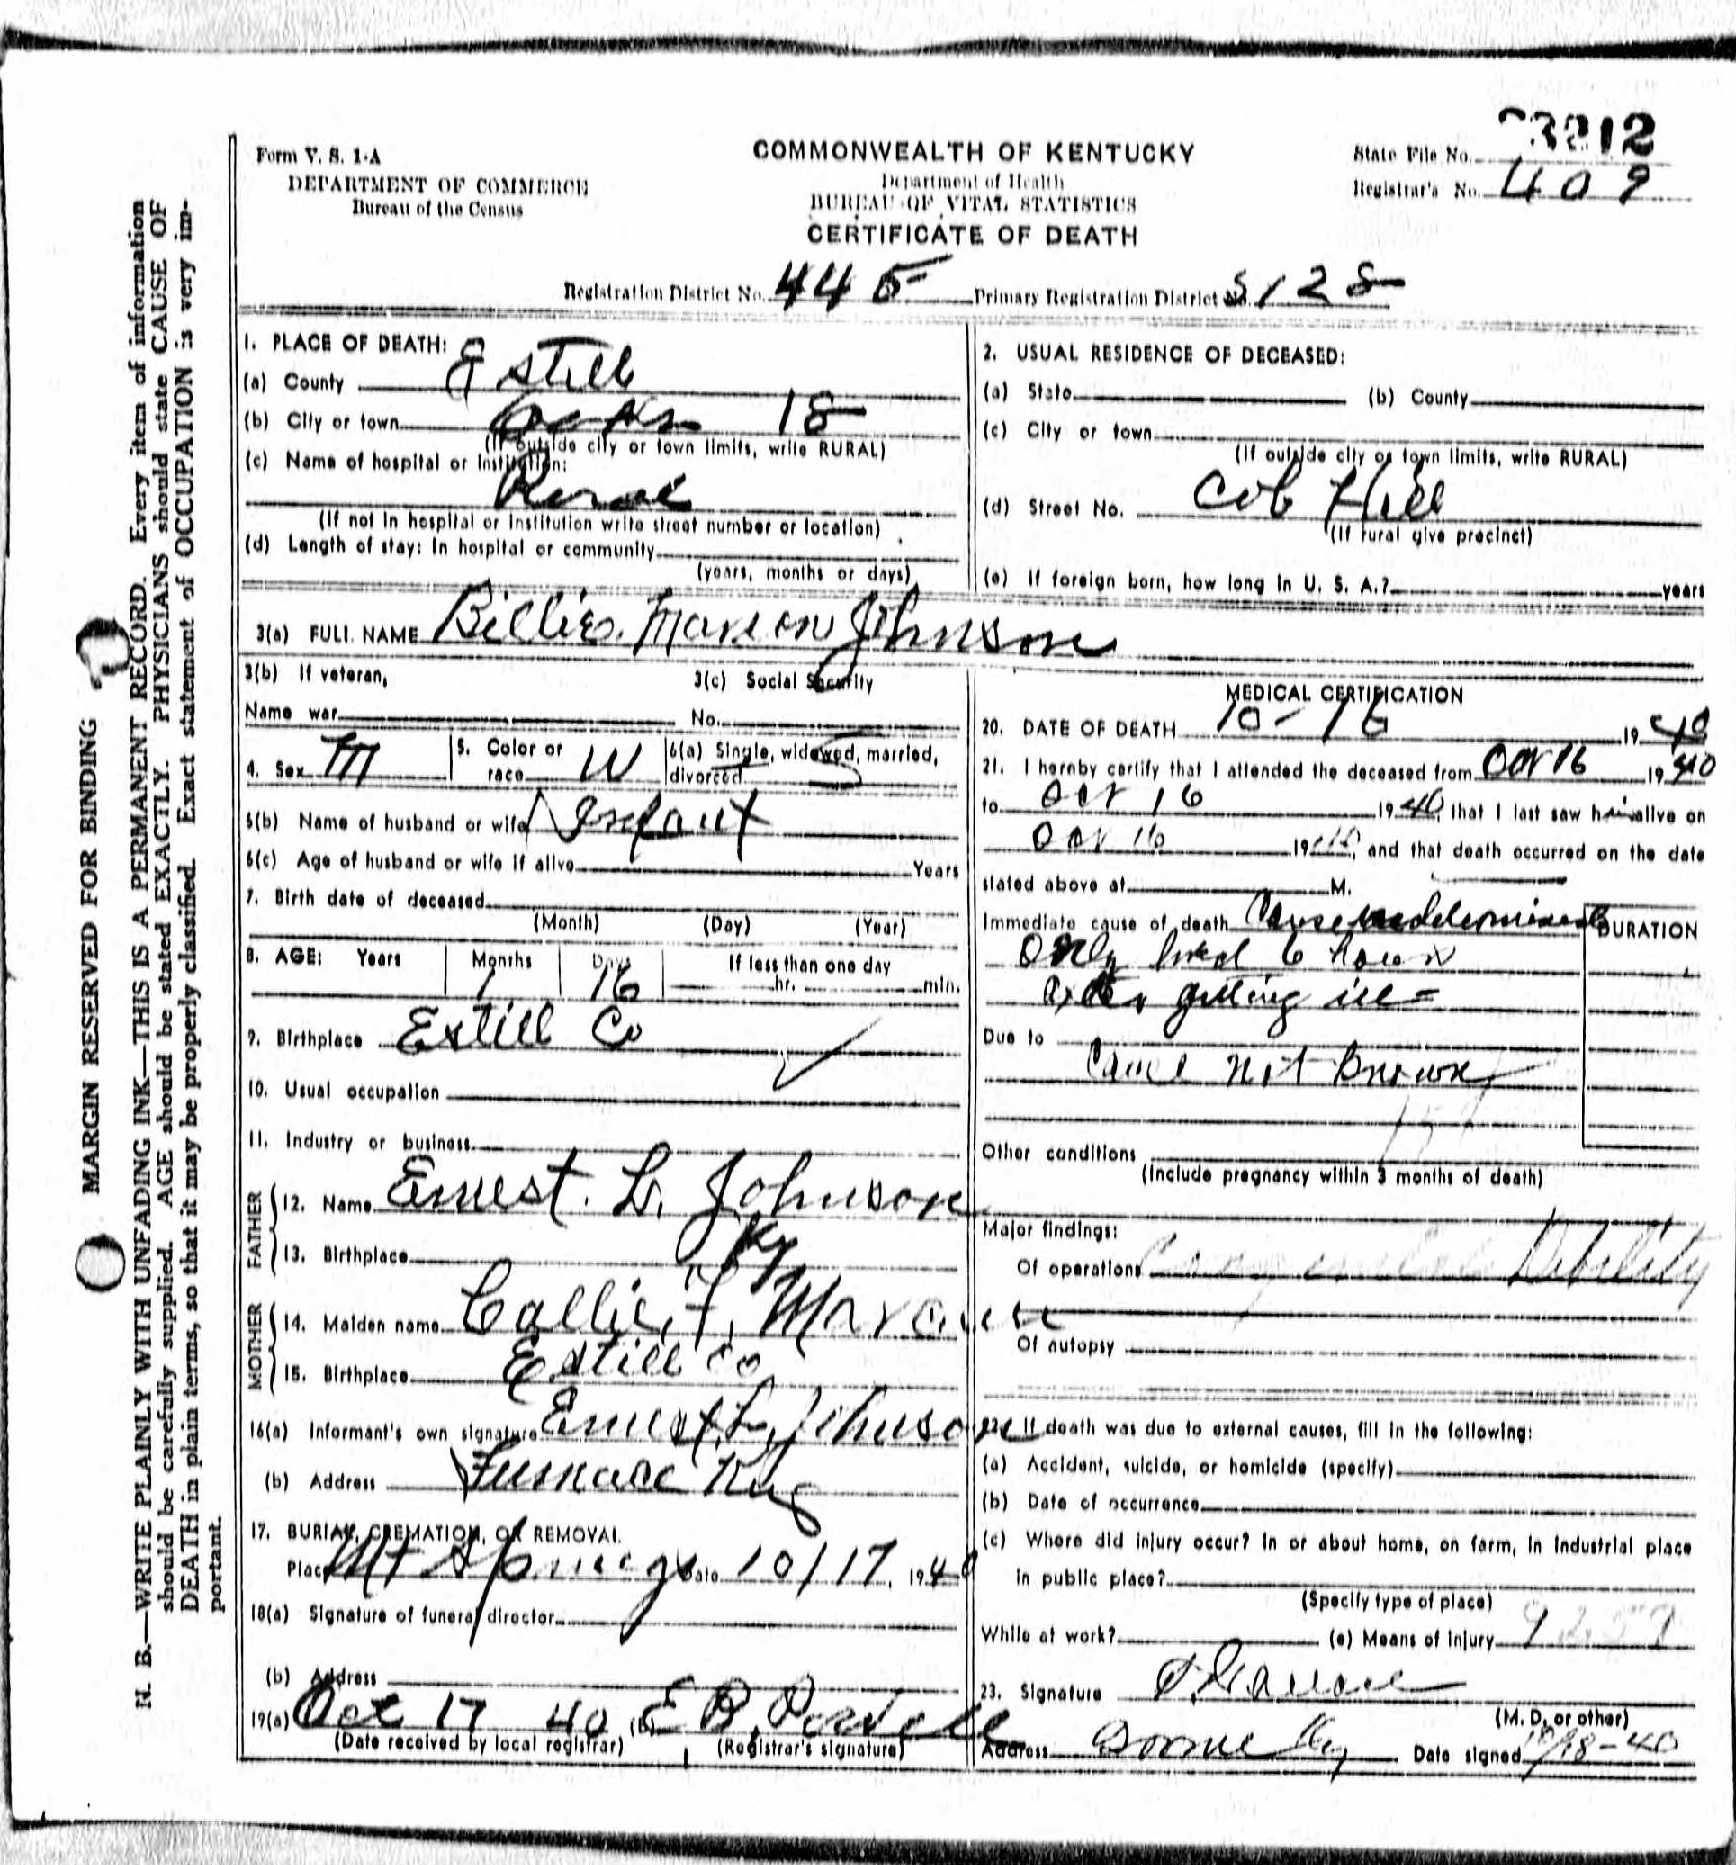 Form V. S. 1-A
DEPARTMENT OF COMMERCE
Bureau of the Census
COMMONWEALTH OF KENTUCKY
Department of Health
BUREAU OF VITAL STATISTICS
CERTIFICATE OF DEATH
State File No. 3212
Registrar's No. 409
Registration District No. 445 Primary Registration District No. 5128
MARGIN RESERVED FOR BINDING
N. B.—WRITE PLAINLY WITH UNFADING INK—THIS IS A PERMANENT RECORD. Every item of information
should be carefully supplied. AGE should be stated EXACTLY. PHYSICIANS should state CAUSE OF
DEATH in plain terms, so that it may be properly classified. Exact statement of OCCUPATION is very im-
portant.
1. PLACE OF DEATH:
(a) County Estill
(b) City or town 18
(If outside city or town limits, write RURAL)
(c) Name of hospital or Institution:
Rural
(If not in hospital or institution write street number or location)
(d) Length of stay: In hospital or community
(years, months or days)
2. USUAL RESIDENCE OF DECEASED:
(a) State (b) County
(c) City or town
(If outside city or town limits, write RURAL)
(d) Street No. Cob Hill
(If rural give precinct)
(e) If foreign born, how long in U. S. A.? years
3(a) FULL NAME Billie Marion Johnson
3(b) If veteran, 3(c) Social Security
Name war No.
4. Sex M 5. Color or race W 6(a) Single, widowed, married, divorced S
6(b) Name of husband or wife Infant
6(c) Age of husband or wife if alive Years
7. Birth date of deceased
(Month) (Day) (Year)
8. AGE: Years Months Days If less than one day
1 16 hr. min.
9. Birthplace Estill Co
10. Usual occupation
11. Industry or business
FATHER
12. Name Ernest L. Johnson
13. Birthplace Ky
MOTHER
14. Maiden name Callie F.
15. Birthplace Estill Co
16(a) Informant's own signature Ernest L. Johnson
(b) Address Furnace Ky
17. BURIAL, CREMATION, OR REMOVAL
Place Mt Springs Date 10/17, 1940
18(a) Signature of funeral director
(b) Address
19(a) Oct 17 40 (b) E B
(Date received by local registrar) (Registrar's signature)
MEDICAL CERTIFICATION
20. DATE OF DEATH 10-16 1940
21. I hereby certify that I attended the deceased from Oct 16 1940
to Oct 16 1940, that I last saw him alive on
Oct 16 1940, and that death occurred on the date
stated above at M.
Immediate cause of death Cause undetermined DURATION
Only lived 6 hours
after getting ill
Due to
Cause not known
Other conditions
(Include pregnancy within 3 months of death)
Major findings:
Of operations Congenital Debility
Of autopsy
22. If death was due to external causes, fill in the following:
(a) Accident, suicide, or homicide (specify)
(b) Date of occurrence
(c) Where did injury occur? In or about home, on farm, in industrial place
in public place?
(Specify type of place)
While at work? (e) Means of injury
23. Signature
(M. D. or other)
Address Ky Date signed 10/18-40